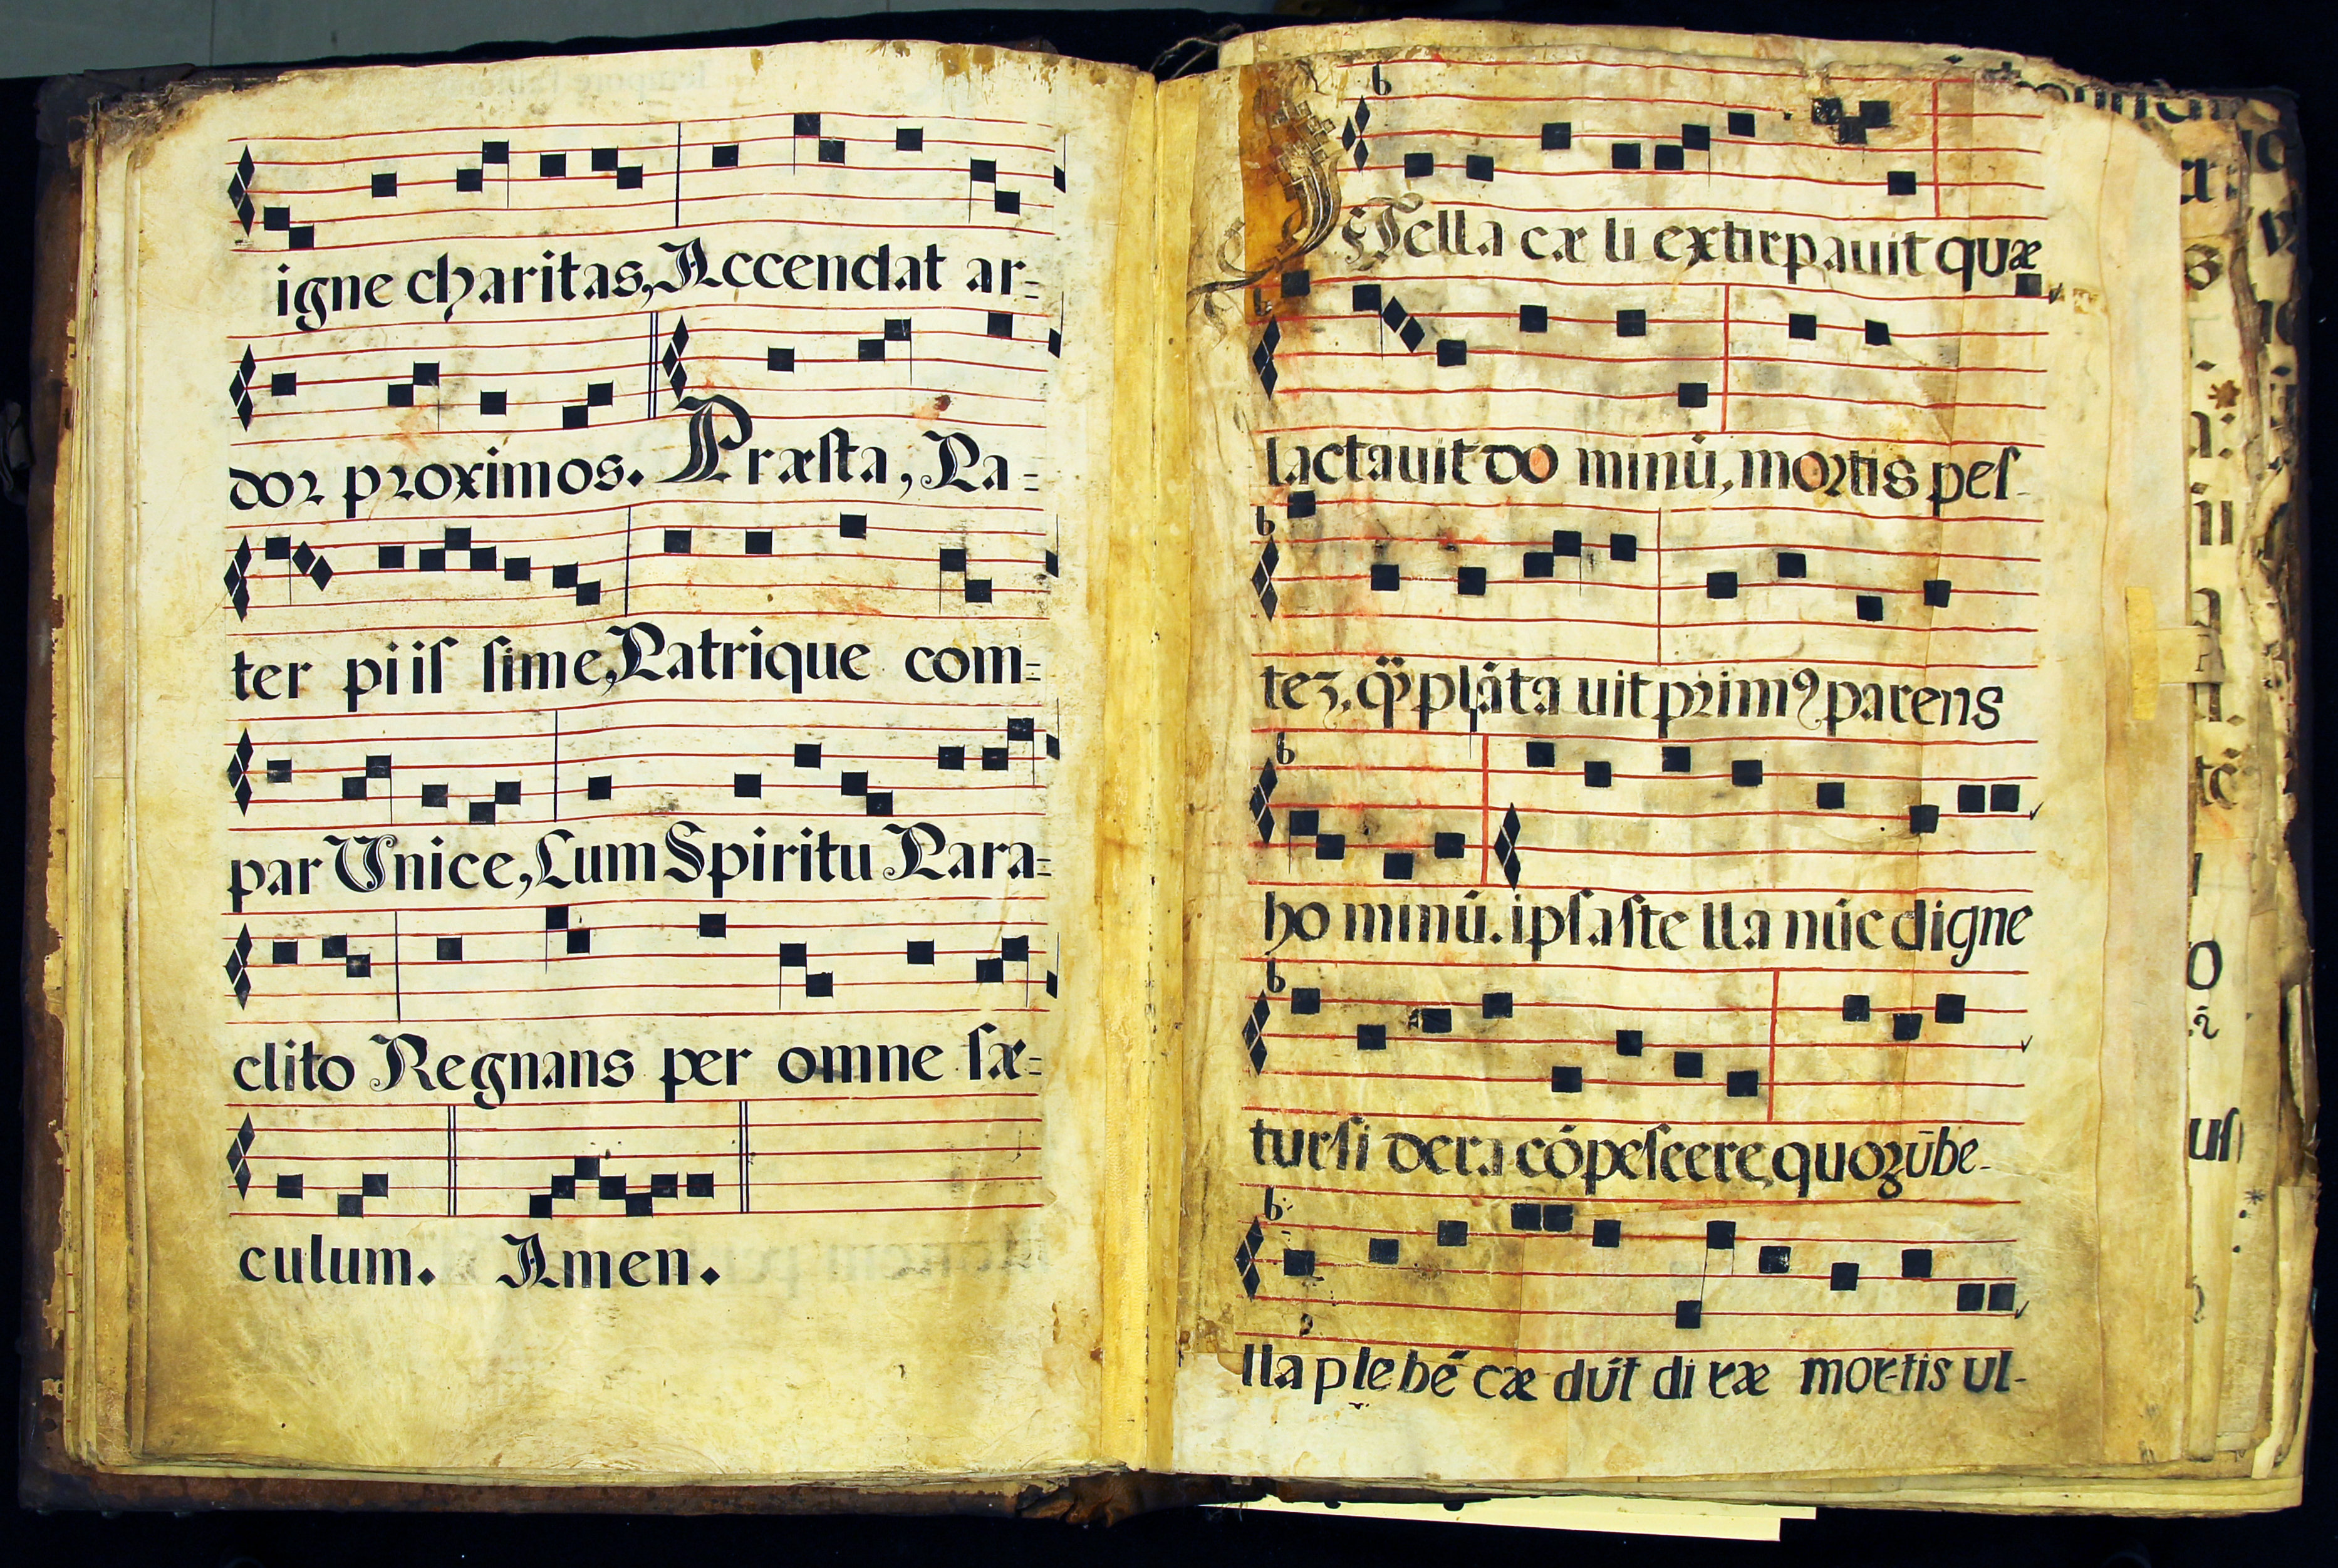 igne charitas, Accendat ar=
dor proximos. Præſta, Pa=
ter piiſ ſime, Patrique com=
par Vnice, Cum Spiritu Para=
clito Regnans per omne ſæ=
culum. Amen.
STella cæ li extirpauit quæ
lactauit do minū, mortis peſ-
tē, q̄ plāta uit primꝰ parens
ho minū. ipſa ſte lla nūc digne
tur ſi dera cōpeſcere, quoꝝ be-
lla plebē cæ dūt di ræ mor-tis ul-